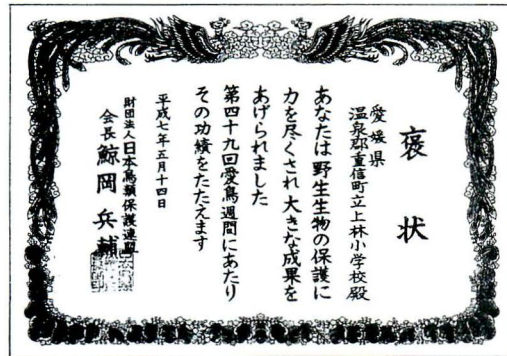 褒状
愛媛県
温泉郡重信町立上林小学校殿
あなたは野生生物の保護に
力を尽くされ大きな成果を
あげられました
第四十九回愛鳥週間にあたり
その功績をたたえます
平成七年五月十四日
財団法人日本鳥類保護連盟
会長 鯨岡兵輔